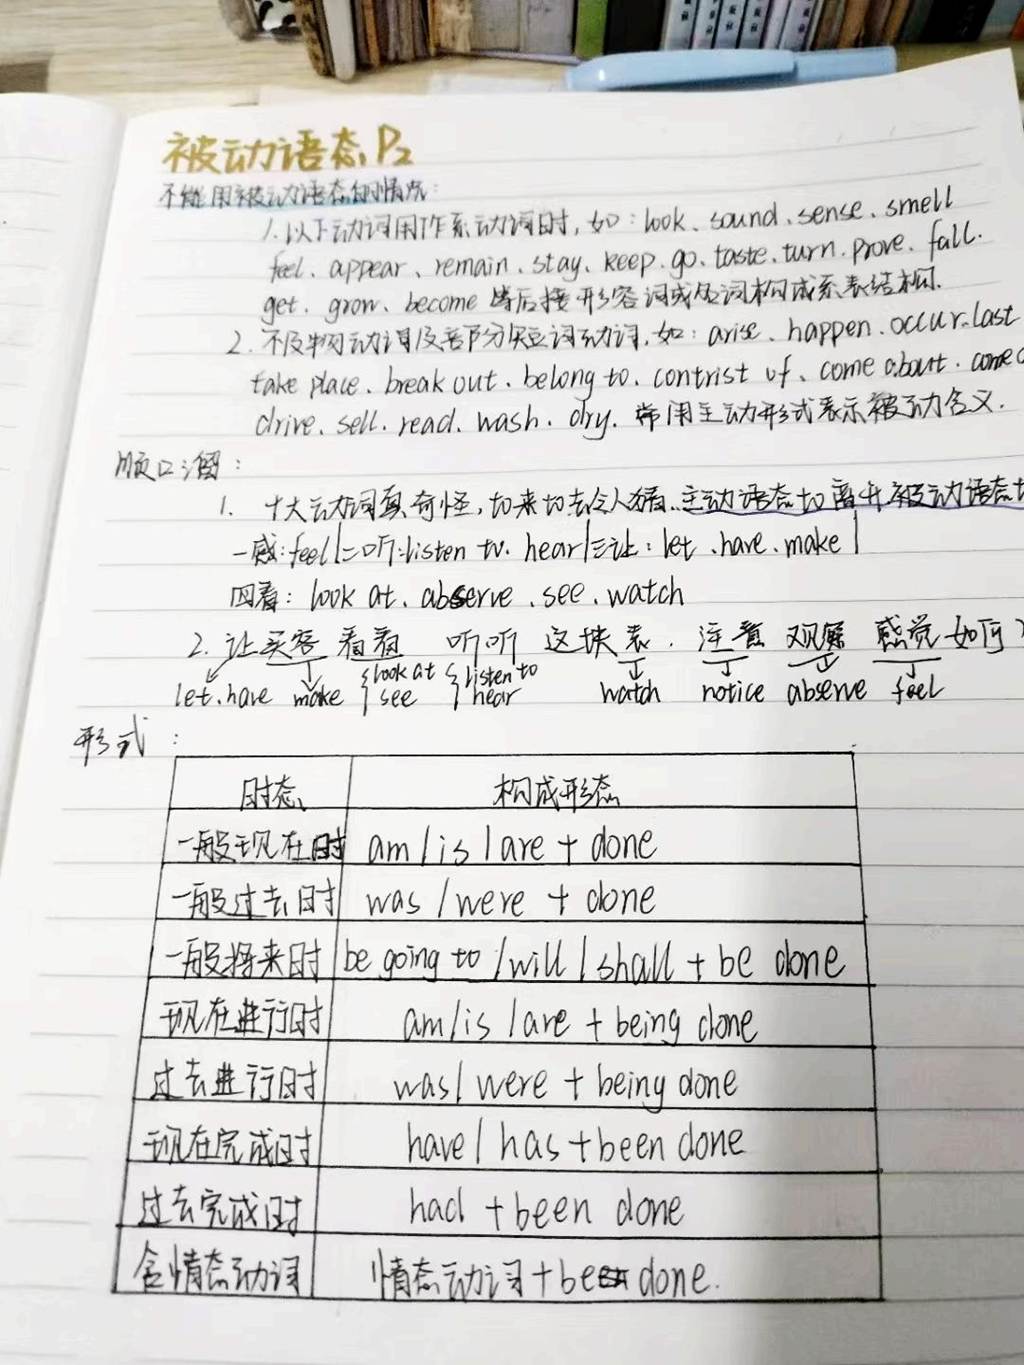 被动语态P2
不能用被动语态的情况:
1.以下动词用作系动词时,如:look、sound、sense、smell
feel、appear、remain、stay、keep、go、taste、turn、prove、fall.
get、grow、become等后接形容词或名词构成系表结构.
2.不及物动词及部分短词动词,如:arise、happen、occur、last
take place、break out、belong to、contrist of、come about、come
drive、sell、read、wash、dry.常用主动形式表示被动含义.
顺口溜:
1. 十大动词真奇怪,to来to去令人猜.主动语态to离开.被动语态t
一感:feel|二听:listen to. hear|三让:let、have、make|
四看:look at、abserve、see、watch
2.让买客看看 听听 这块表.注意 观察 感觉如何?
let、have make look at see listen to hear watch notice abserve feel
形式:
时态 构成形态
一般现在时 am/is/are + done
一般过去时 was/were + done
一般将来时 be going to/will/shall + be done
现在进行时 am/is/are + being done
过去进行时 was/were + being done
现在完成时 have/has + been done
过去完成时 had + been done
含情态动词 情态动词+be done.